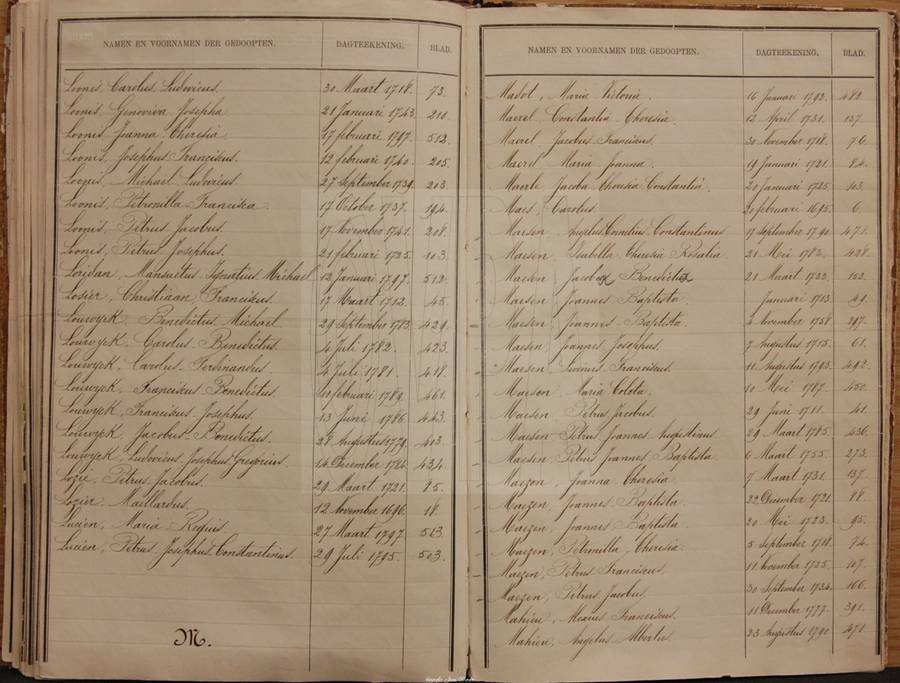 NAMEN EN VOORNAMEN DER GEDOOPTEN. DAGTEEKENING. BLAD.
Loonis, Carolus Ludovicus. 30 Maart 1718. 73.
Loonis, Genoviva Josepha 21 Januari 1743. 210.
Loonis Joanna Theresia 17 februari 1797. 512.
Loonis, Josephus Franciskus. 12 februari 1740. 205.
Loonis, Michael Ludovicus. 27 September 1739. 203.
Loonis, Petronilla Franciska 17 October 1737. 194.
Loonis, Petrus Jacobus. 17 November 1741. 208.
Loonis, Petrus Josephus. 21 februari 1725. 103.
Loridan, Mansuetus Ignatius Michael 12 Januari 1797. 512.
Losier, Christiaan Franciskus. 17 Maart 1712. 45.
Louwyck, Benedictus Michael 29 September 1783. 429.
Louwyck, Carolus Benedictus. 4 Juli 1782. 423.
Louwyck, Carolus Ferdinandus. 4 Juli 1781. 418.
Louwyck, Franciskus Benedictus. februari 1789. 461.
Louwyck, Franciskus Josephus. 13 Juni 1786. 443.
Louwyck, Jacobus Benedictus. 28 Augustus 1779. 413.
Louwyck Ludovicus Josephus Gregorius 14 December 1784. 434.
Loze, Petrus Jacobus. 29 Maart 1721. 85.
Lozier, Maillardus. 12 November 1696. 18.
Lucien, Maria Reguis 27 Maart 1797. 513.
Lucien, Petrus Josephus Constantinus. 29 Juli 1795. 503.
M.
NAMEN EN VOORNAMEN DER GEDOOPTEN. DAGTEEKENING. BLAD.
Madot, Maria Victoria. 16 Januari 1793. 482.
Maerel Constantia Theresia. 12 April 1731. 137.
Maerel Jacobus Franciskus. 30 November 1718. 76.
Maerel Maria Joanna. 19 Januari 1721. 84.
Maerle Jacoba Theresia Constantia. 28 Januari 1725. 103.
Maes, Carolus. 20 februari 1695. 6.
Maesen Angelus Cornelius Constantinus 17 September 1790. 471.
Maesen Isabella Theresia Rosalia 21 Mei 1783. 428.
Maesen Benedict 21 Maart 1733. 152.
Maesen Joannes Baptista. Januari 1713. 49.
Maesen, Joannes Baptista. 4 November 1758. 297.
Maesen Joannes Josephus. 7 Augustus 1715. 61.
Maesen Franciscus. 11 Augustus 1793. 492.
Maeson Maria Coleta. 10 Mei 1787. 450.
Maesen Petrus Jacobus. 29 Juni 1711. 41.
Maesen Petrus Joannes Augustinus 29 Maart 1785. 436.
Maesen, Petrus Joannes Baptista 6 Maart 1755. 273.
Maezen, Joanna Theresia. 7 Maart 1731. 137.
Maezen Joannes Baptista. 22 December 1721. 88.
Maezen, Joannes Baptista. 20 Mei 1723. 95.
Maezen, Petronilla Theresia. 5 September 1718. 74.
Maezen, Petrus Franciscus. 11 November 1725. 107.
Maezen, Petrus Jacobus. 30 September 1734. 166.
Mahieu, Franciscus. 11 December 1777. 391.
Mahieu, Angelus Albertus 23 Augustus 1790 471.